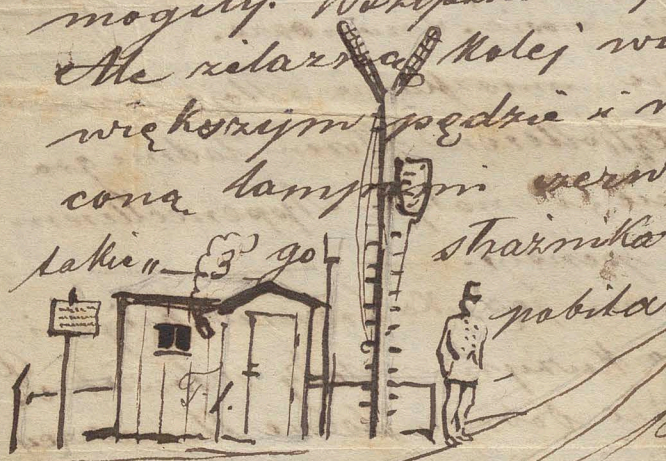 mogiły.
Ale żelazną kolej
większym pędzie i
coną lampami
takie„ — 3go strażnika
pobiła
T. 1.